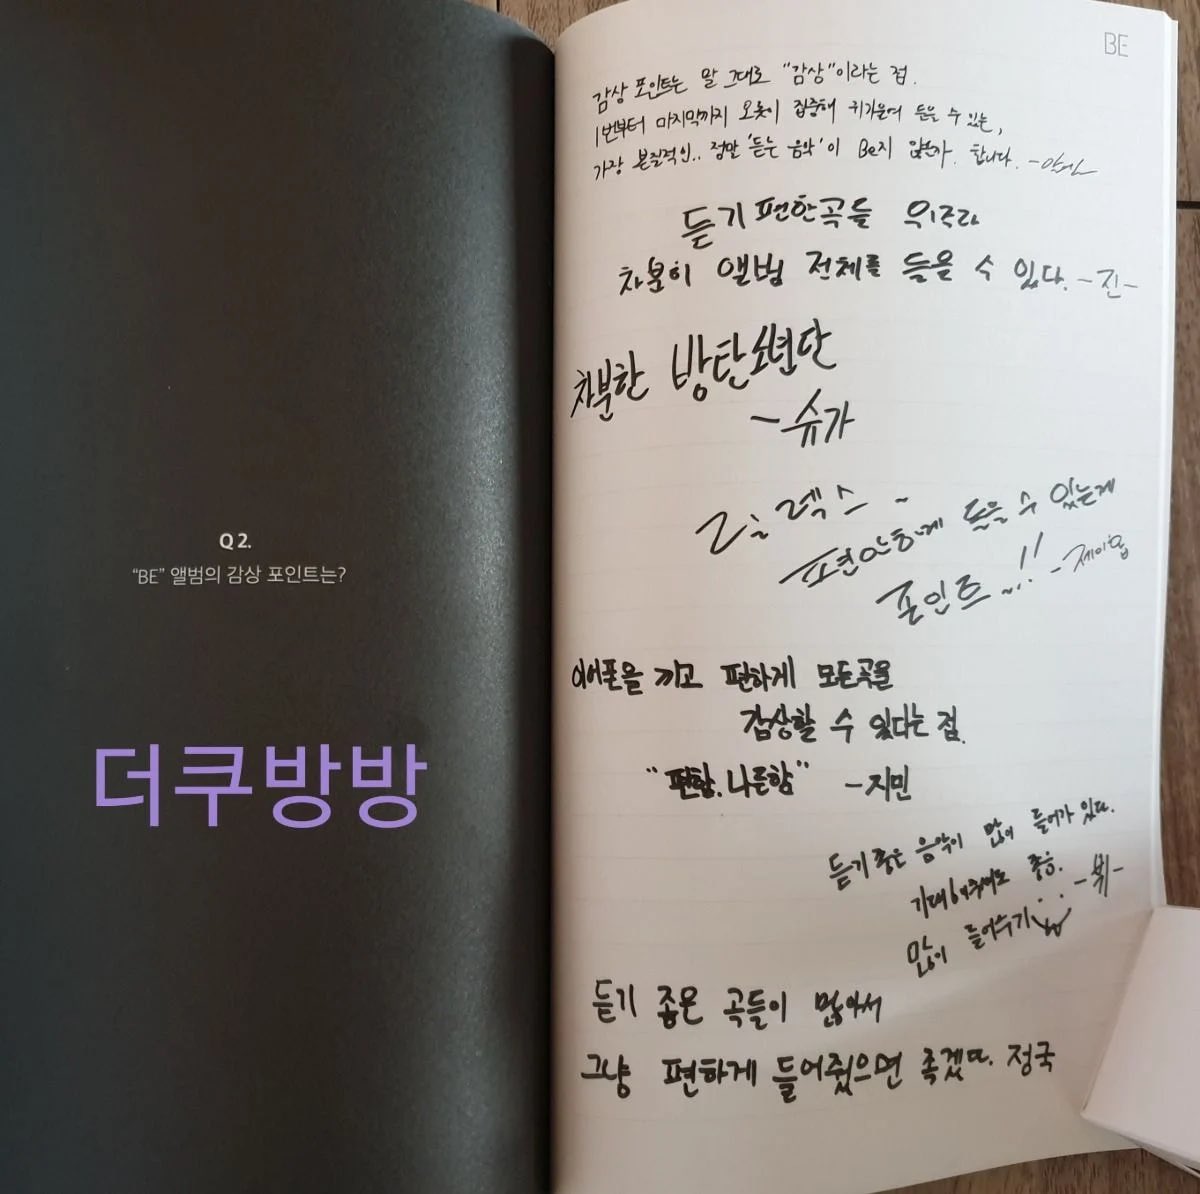 Q 2.
“BE” 앨범의 감상 포인트는?
더쿠방방
BE
감상 포인트는 말 그대로 "감상"이라는 점.
1번부터 마지막까지 오롯이 집중해 귀기울여 들을 수 있는,
가장 본질적인.. 정말 '듣는 음악'이 Be지 않은가. 합니다.
듣기 편한곡들 위주라
차분히 앨범 전체를 들을 수 있다. -진-
차분한 방탄소년단
-슈가
릴렉스 ~
편안하게 들을 수 있는게
포인트 ~!! -제이홉
이어폰을 끼고 편하게 모든곡을
감상할 수 있다는 점.
"편함. 나른함" -지민
듣기좋은 음악이 많이 들어가 있다.
기대해주셔도 좋음. -뷔-
많이 들어주기
듣기 좋은 곡들이 많아서
그냥 편하게 들어줬으면 좋겠다. 정국